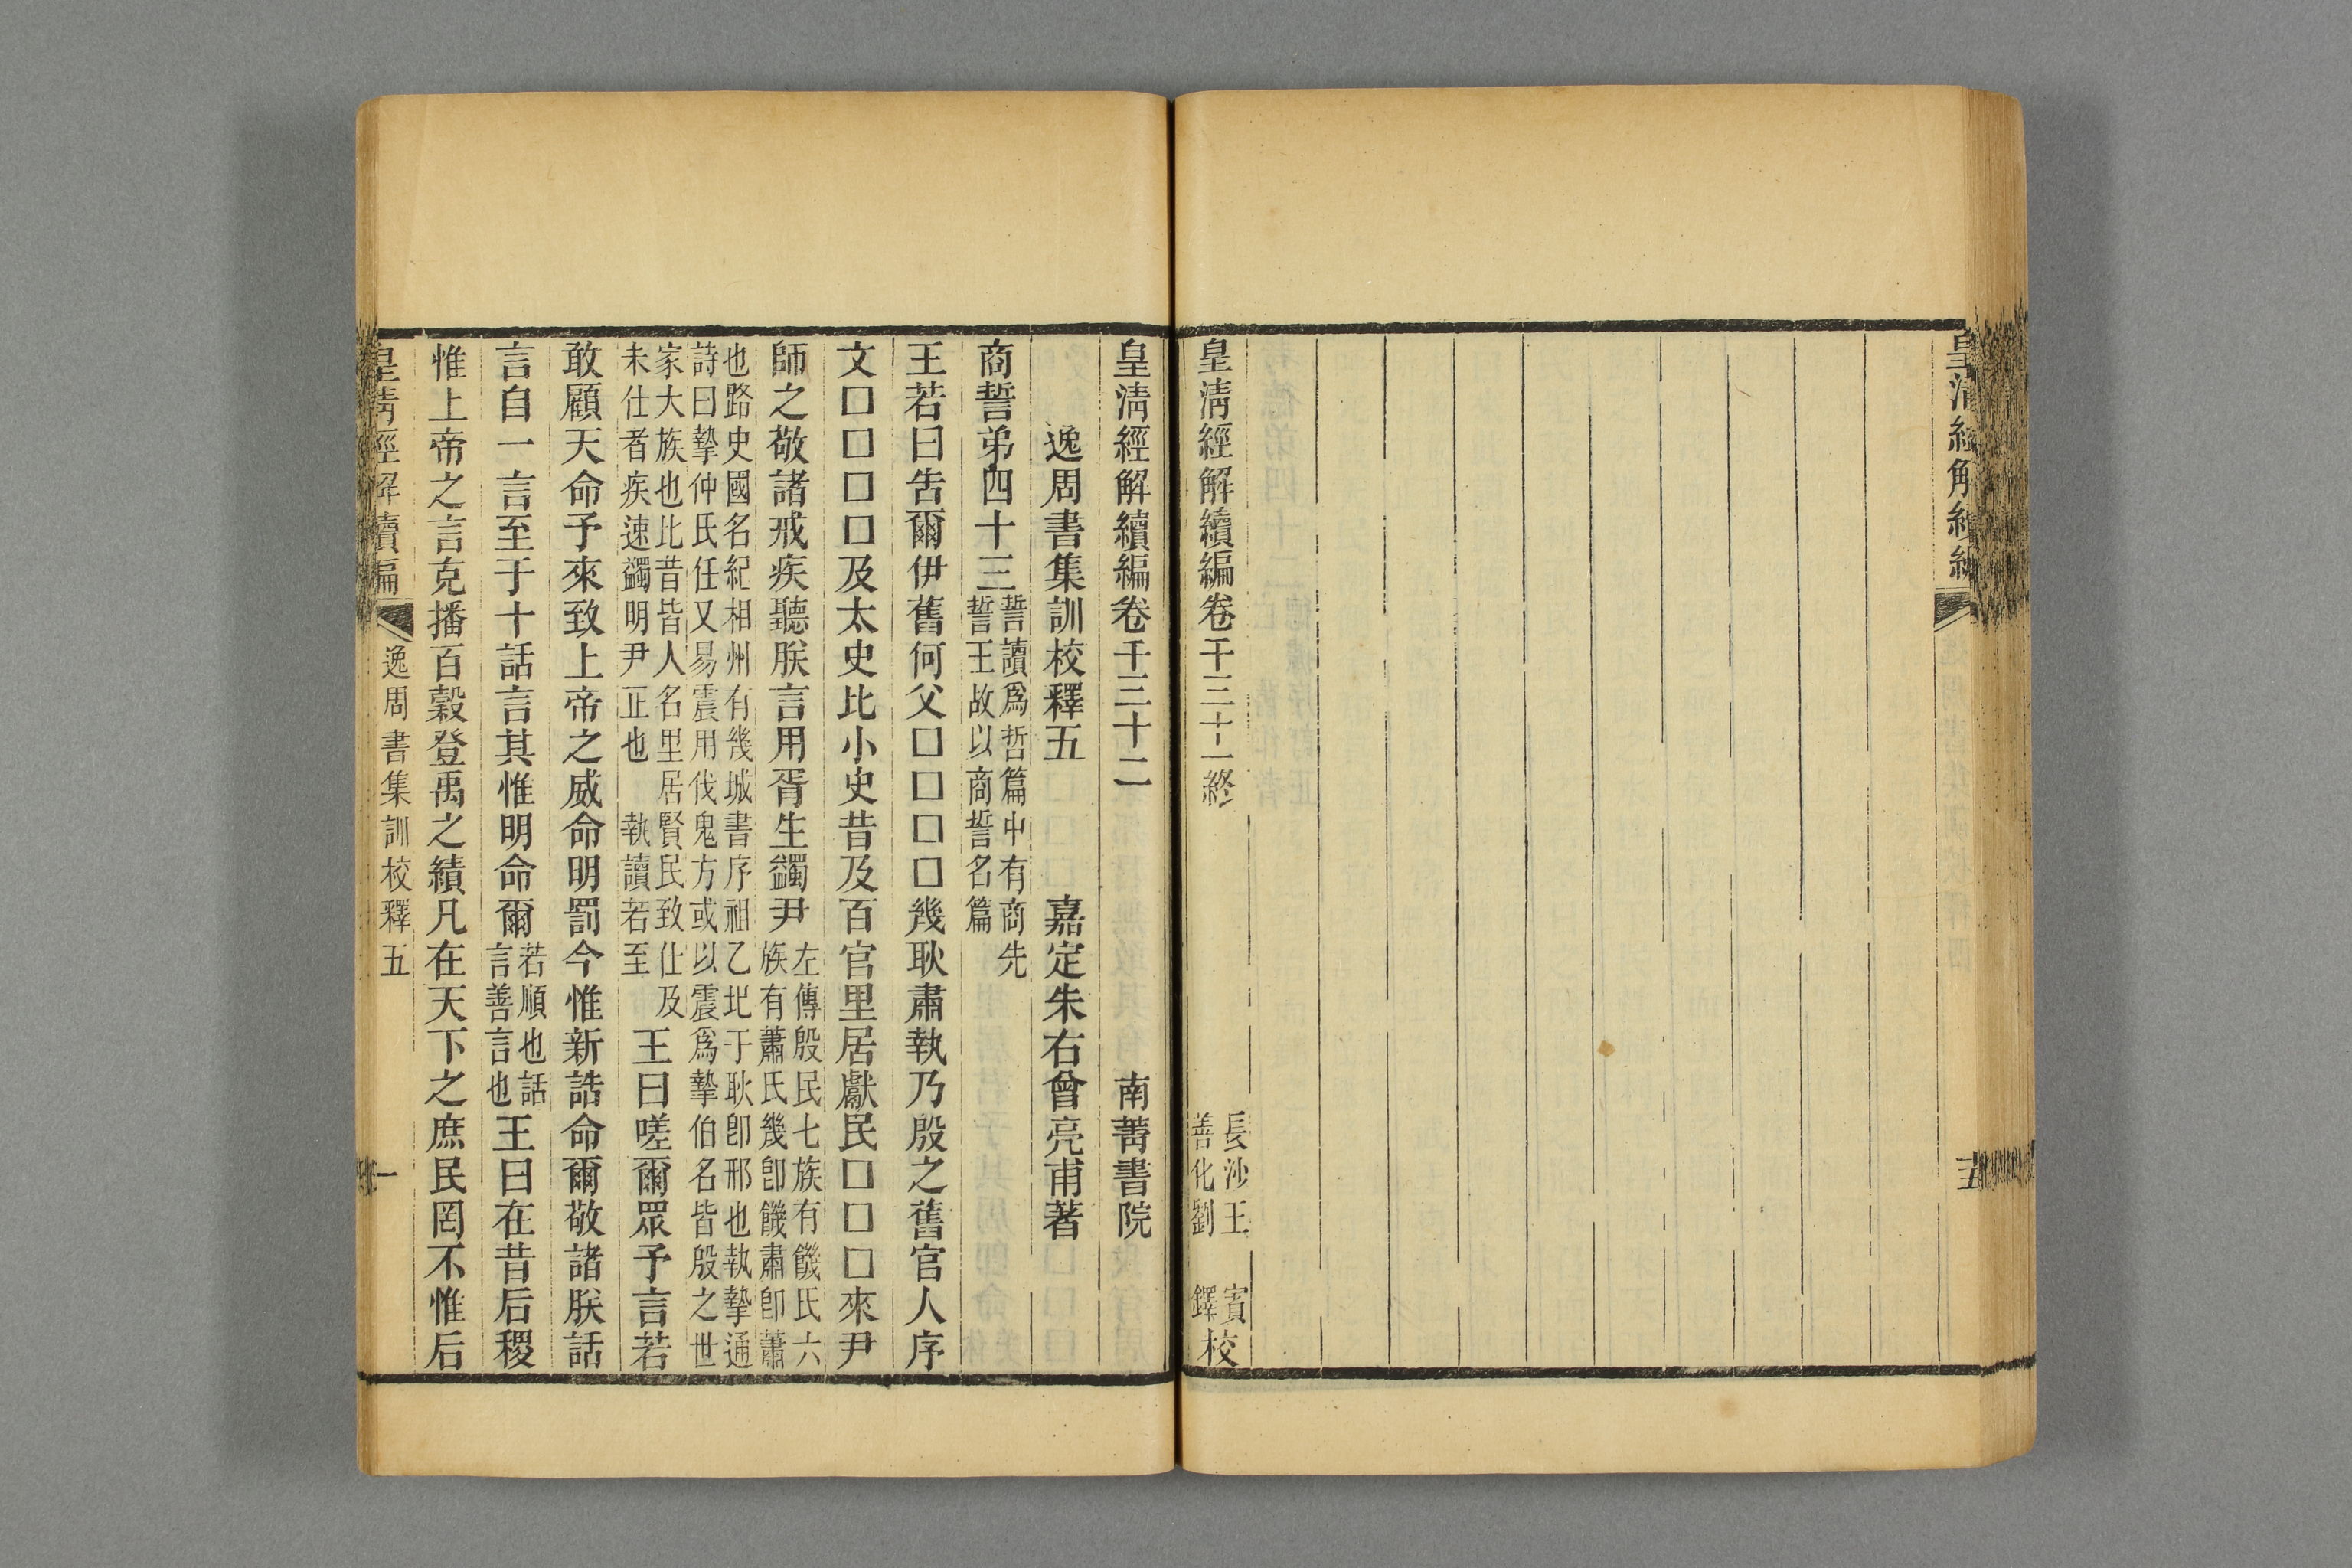 皇清經解續編
十五
皇清經解續編卷千三十一終
長沙王　賓
善化劉　鐸
校
皇清經解續編卷千三十二　南菁書院
逸周書集訓校釋五　嘉定朱右曾亮甫著
商誓弟四十三
誓讀爲哲篇中有商先
誓王故以商誓名篇
王若曰告爾伊舊何父□□□□幾耿肅執乃殷之舊官人序
文□□□□及太史比小史昔及百官里居獻民□□□來尹
師之敬諸戒疾聽朕言用胥生蠲尹
左傳殷民七族有饑氏六
族有蕭氏幾卽饑肅卽蕭
也路史國名紀相州有幾城書序祖乙圯于耿卽邢也執摯通
詩曰摯仲氏任又易震用伐鬼方或以震爲摯伯名皆殷之世
家大族也比昔皆人名里居賢民致仕及
未仕者疾速蠲明尹正也　執讀若至
王曰嗟爾眾予言若
敢顧天命予來致上帝之威命明罰今惟新誥命爾敬諸朕話
言自一言至于十話言其惟明命爾
若順也話
言善言也
王曰在昔后稷
惟上帝之言克播百穀登禹之績凡在天下之庶民罔不惟后
皇清經解續編　逸周書集訓校釋五　一